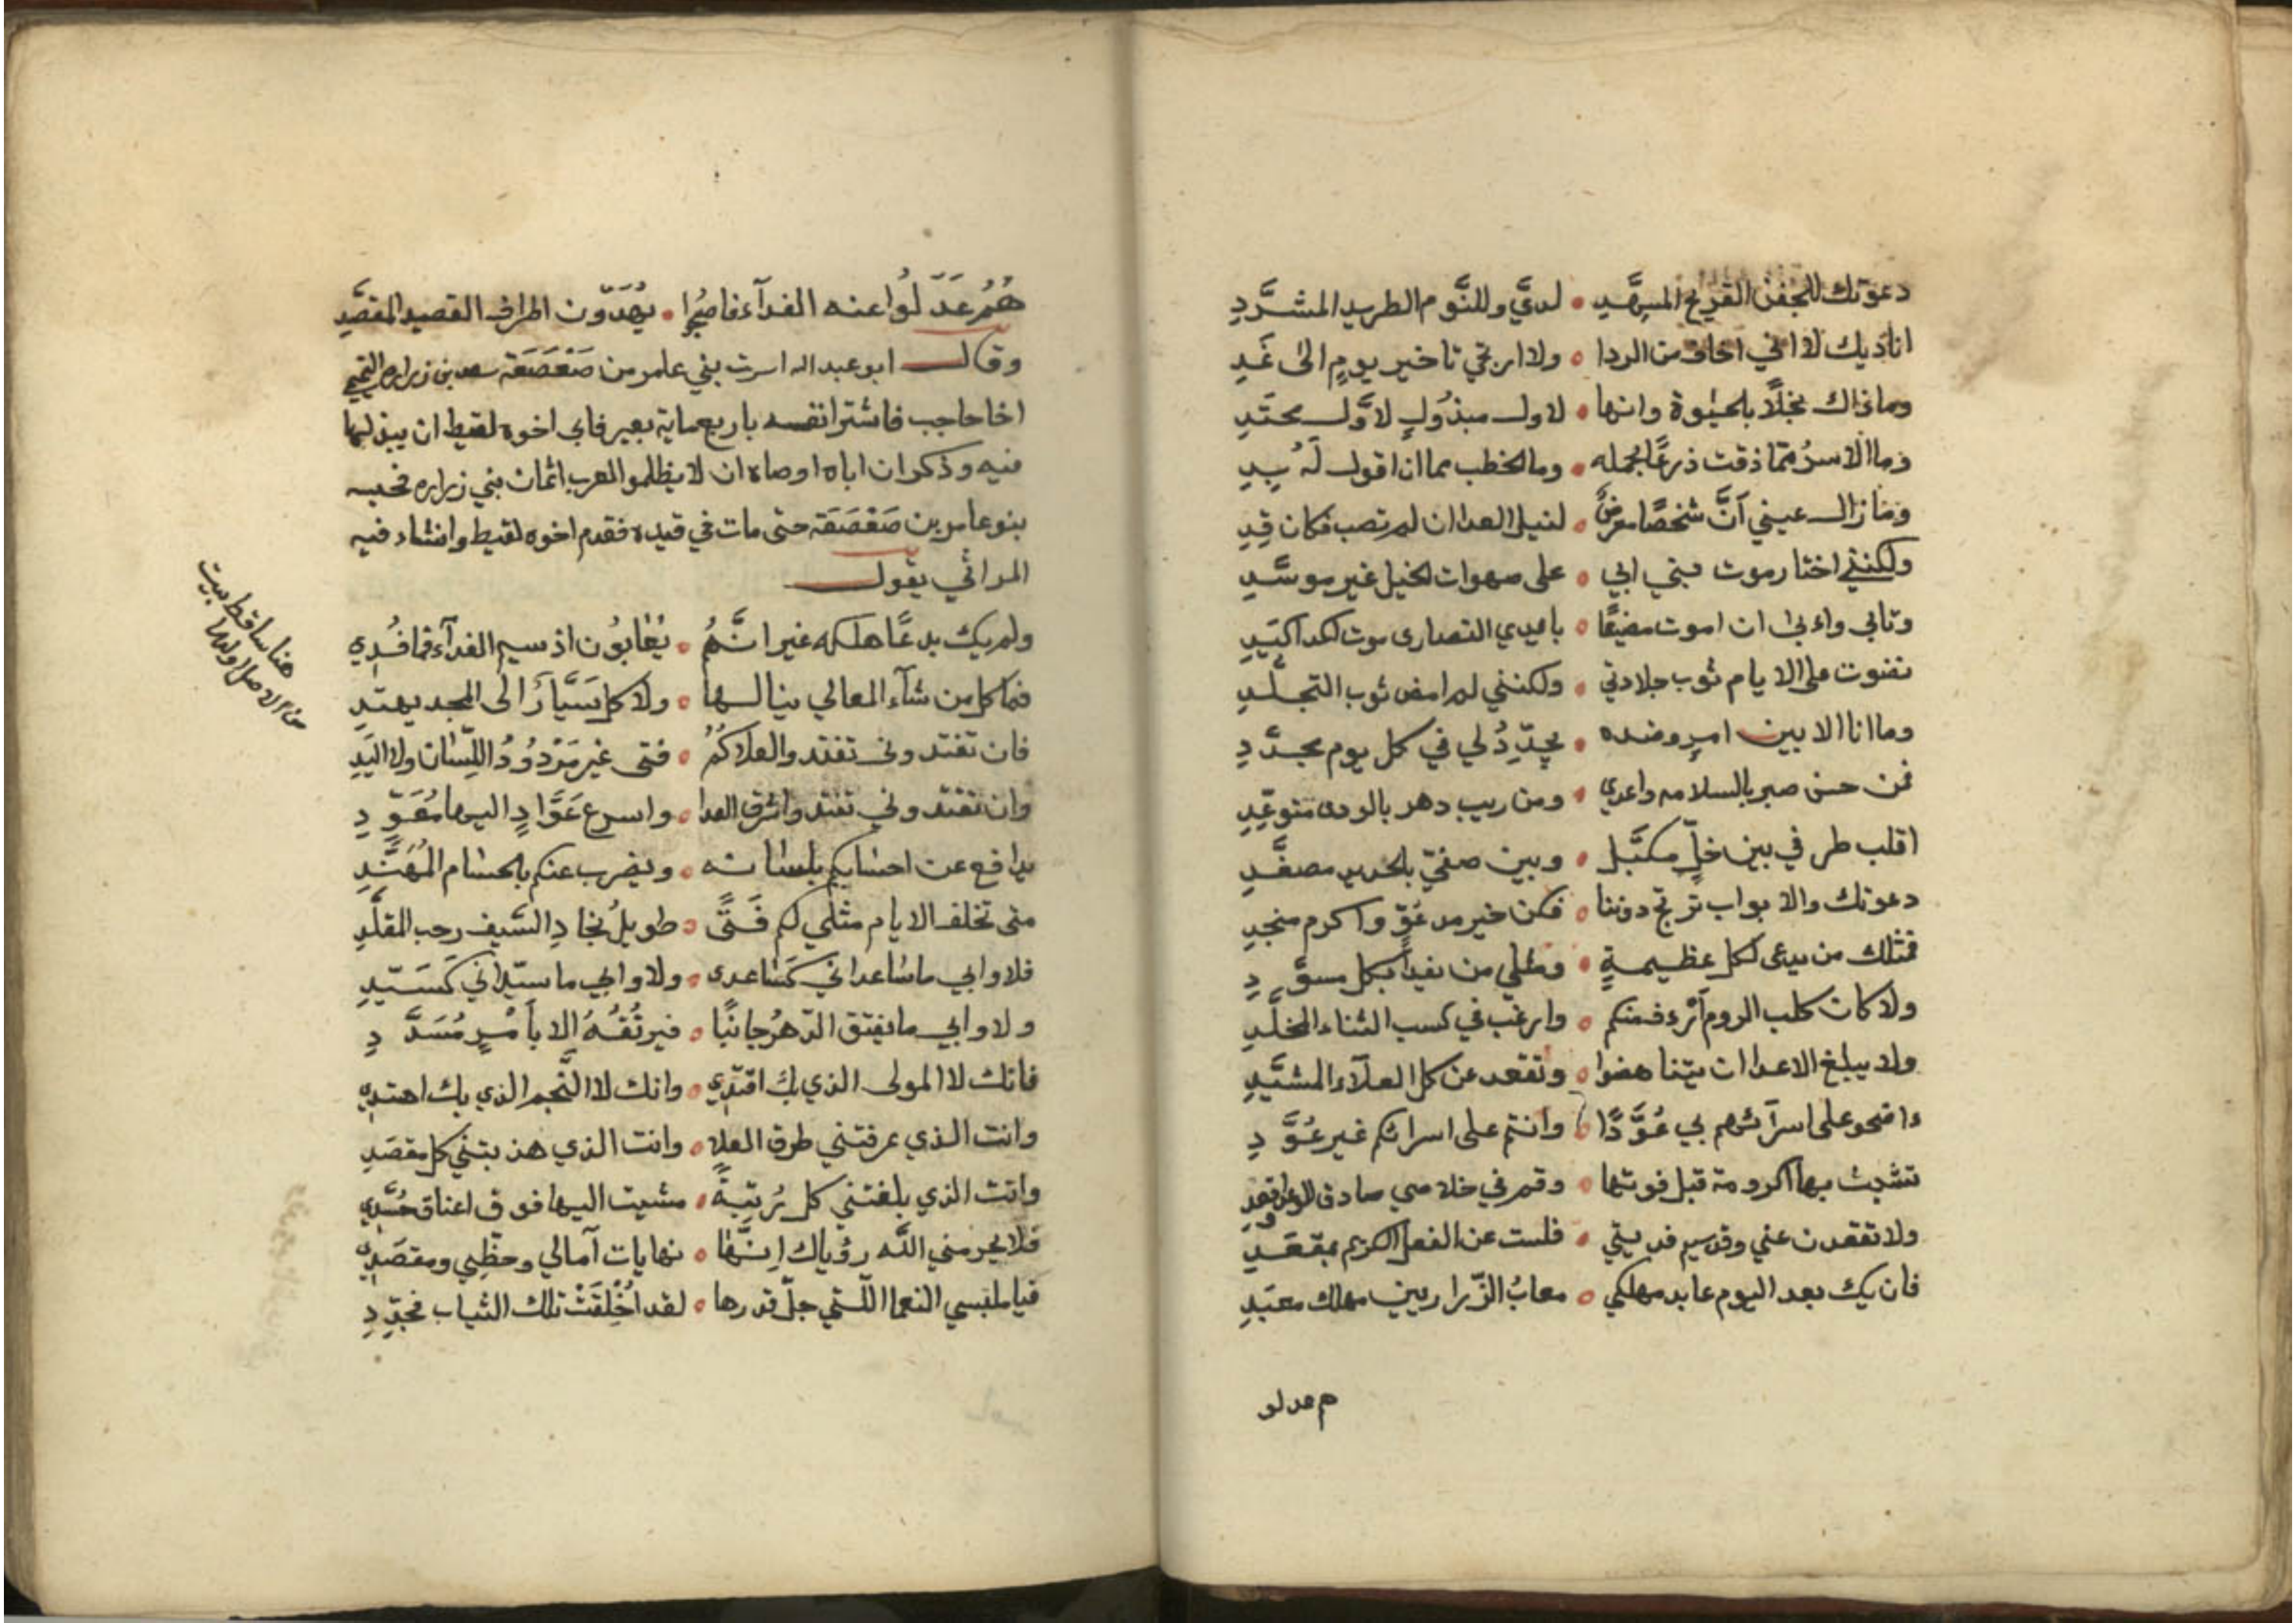 دعوتك للجفن القريح المسهَّد • لديَّ وللنَّوم الطريد المشرَّدِ
اناديك لا اني اخاف من الردا • ولا ارتجي تاخير يومٍ الى غَدِ
وما ذاك بخلًا بالحيٰوة وانها • لاول مبذُولٍ لاَّول محتَدِ
وما الاسرُ ممّا ذقت ذرعًا بحمله • وما الخطب مما ان اقول لَهُ بِدِ
وما زال عيني أنَّ شخصًا معرضٌ • لنيل العدا ان لم تصب فكان قِدِ
ولكنني اختار موت بني ابي • على صهوات الخيل غير موسَّدِ
وتابى واءبى ان اموت مضيعًا • بايدي النصارى موت لكد اكبَدِ
نضوت على الايام ثوب جلادتي • ولكنني لم امض ثوب التجلّدِ
وما انا الا بين امرٍ وضده • يجدِّدُ لي في كل يوم مجدَّدِ
فمن حسن صبر بالسلامه واعدي • ومن ريب دهر بالردى متوعِّدِ
اقلب طرفي بين خلٍّ مكبَّل • وبين صفيّ بالحديد مصفَّدِ
دعوتك والابواب ترتج دوننا • فكن خير مدعُوٍّ واكرم منجدِ
فمثلك من يدعى لكل عظيمةٍ • ومثلي من يفدا بكل مسوَّدِ
ولا كان كلب الروم أرءف منكم • وارغب في كسب الثناء المخلَّدِ
ولا يبلغ الاعدا ان يتناهضوا • وتقعد عن كل العلآء المشيَّدِ
واضحو على اسرآئهم بي عُوَّدًا • وانتم على اسرائكم غير عُوَّدِ
تشبث بها اكرومة قبل فوتها • وقم في خلاصي صادق الوعد واقعدِ
ولا تقعدن عني وقد سيم فديتي • فلست عن الفعل الكريم بمقعَدِ
فان يك بعد اليوم عابد مهلكي • معابُ الزّراريين مهلك معبَدِ
م عدلو
هُمُ عَدَّلُوا عنه الفدآء فاصبحُوا • يهُدّون اطراف القصيد المقصَّدِ
وقال ابو عبد الله اسرت بني عامر من صَعْصَعَة سعد بن زراره التميمي
اخا حاجب فاشترا نفسه باربعماية بعير فابى اخوه لقيط ان يبذلها
فيه وذكر ان اباه اوصاه ان لا يظلمو العرب اثمان بني زراره فحبسه
بنو عامر بن صَعْصَعَة حتى مات في قيده فقدم اخوه لقيط وانشاء فيه
المراثي يقول
ولم يك بدعًا هلكه غير انَّهُمُ • يُعٰابُون اذ سيم الفدآء فما فُدِي
فما كل من شآء المعالي ينالها • ولا كل سَيَّارٍ الى المجد يهتدِ
فان تفتدوني تفتدو العلاكُمُ • فتى غير مَرْدُودُ اللِّسٰان ولا اليَدِ
وان تفتدوني تفتدوا شرف العدا • واسرع عَوَّادٍ اليها مُعَوّدِ
يدافع عن احسٰابكم بلسٰانه • ويضرب عنكم بالحسٰام المُهَنَّدِ
متى تخلف الايام مثلي لكم فَتًى • طويلُ نجادِ السَّيف رحب المقلَّدِ
فلا وابي ما سٰاعداني كَسٰاعدى • ولا وابي ما سيّداني كَسَيّدِ
ولا وابي ما يفتق الدّهرُ جانبًا • فيرتُقُهُ الا بأمرٍ مُسَدَّدِ
فانك لا المولى الذي بِكَ اقتدِي • وانك لا النَّجم الذي بك اهتدِي
وانت الذي عرفتني طرق العلا • وانت الذي هذبتني كل مقصَدِ
وانت الذي بلغتني كل رُتبةً • مشيت اليها فوق اعناق حُسَّدِي
فلا يحرمني اللَّه رؤياك اِنَّهٰا • نهايات آمالي وحظِّي ومقصَدِي
فيا ملبسي النعما اللَّتي جلّ قدرها • لقد اُخْلِقَتْ تلك الثياب فجدّدِ
هنا ساقط بيت